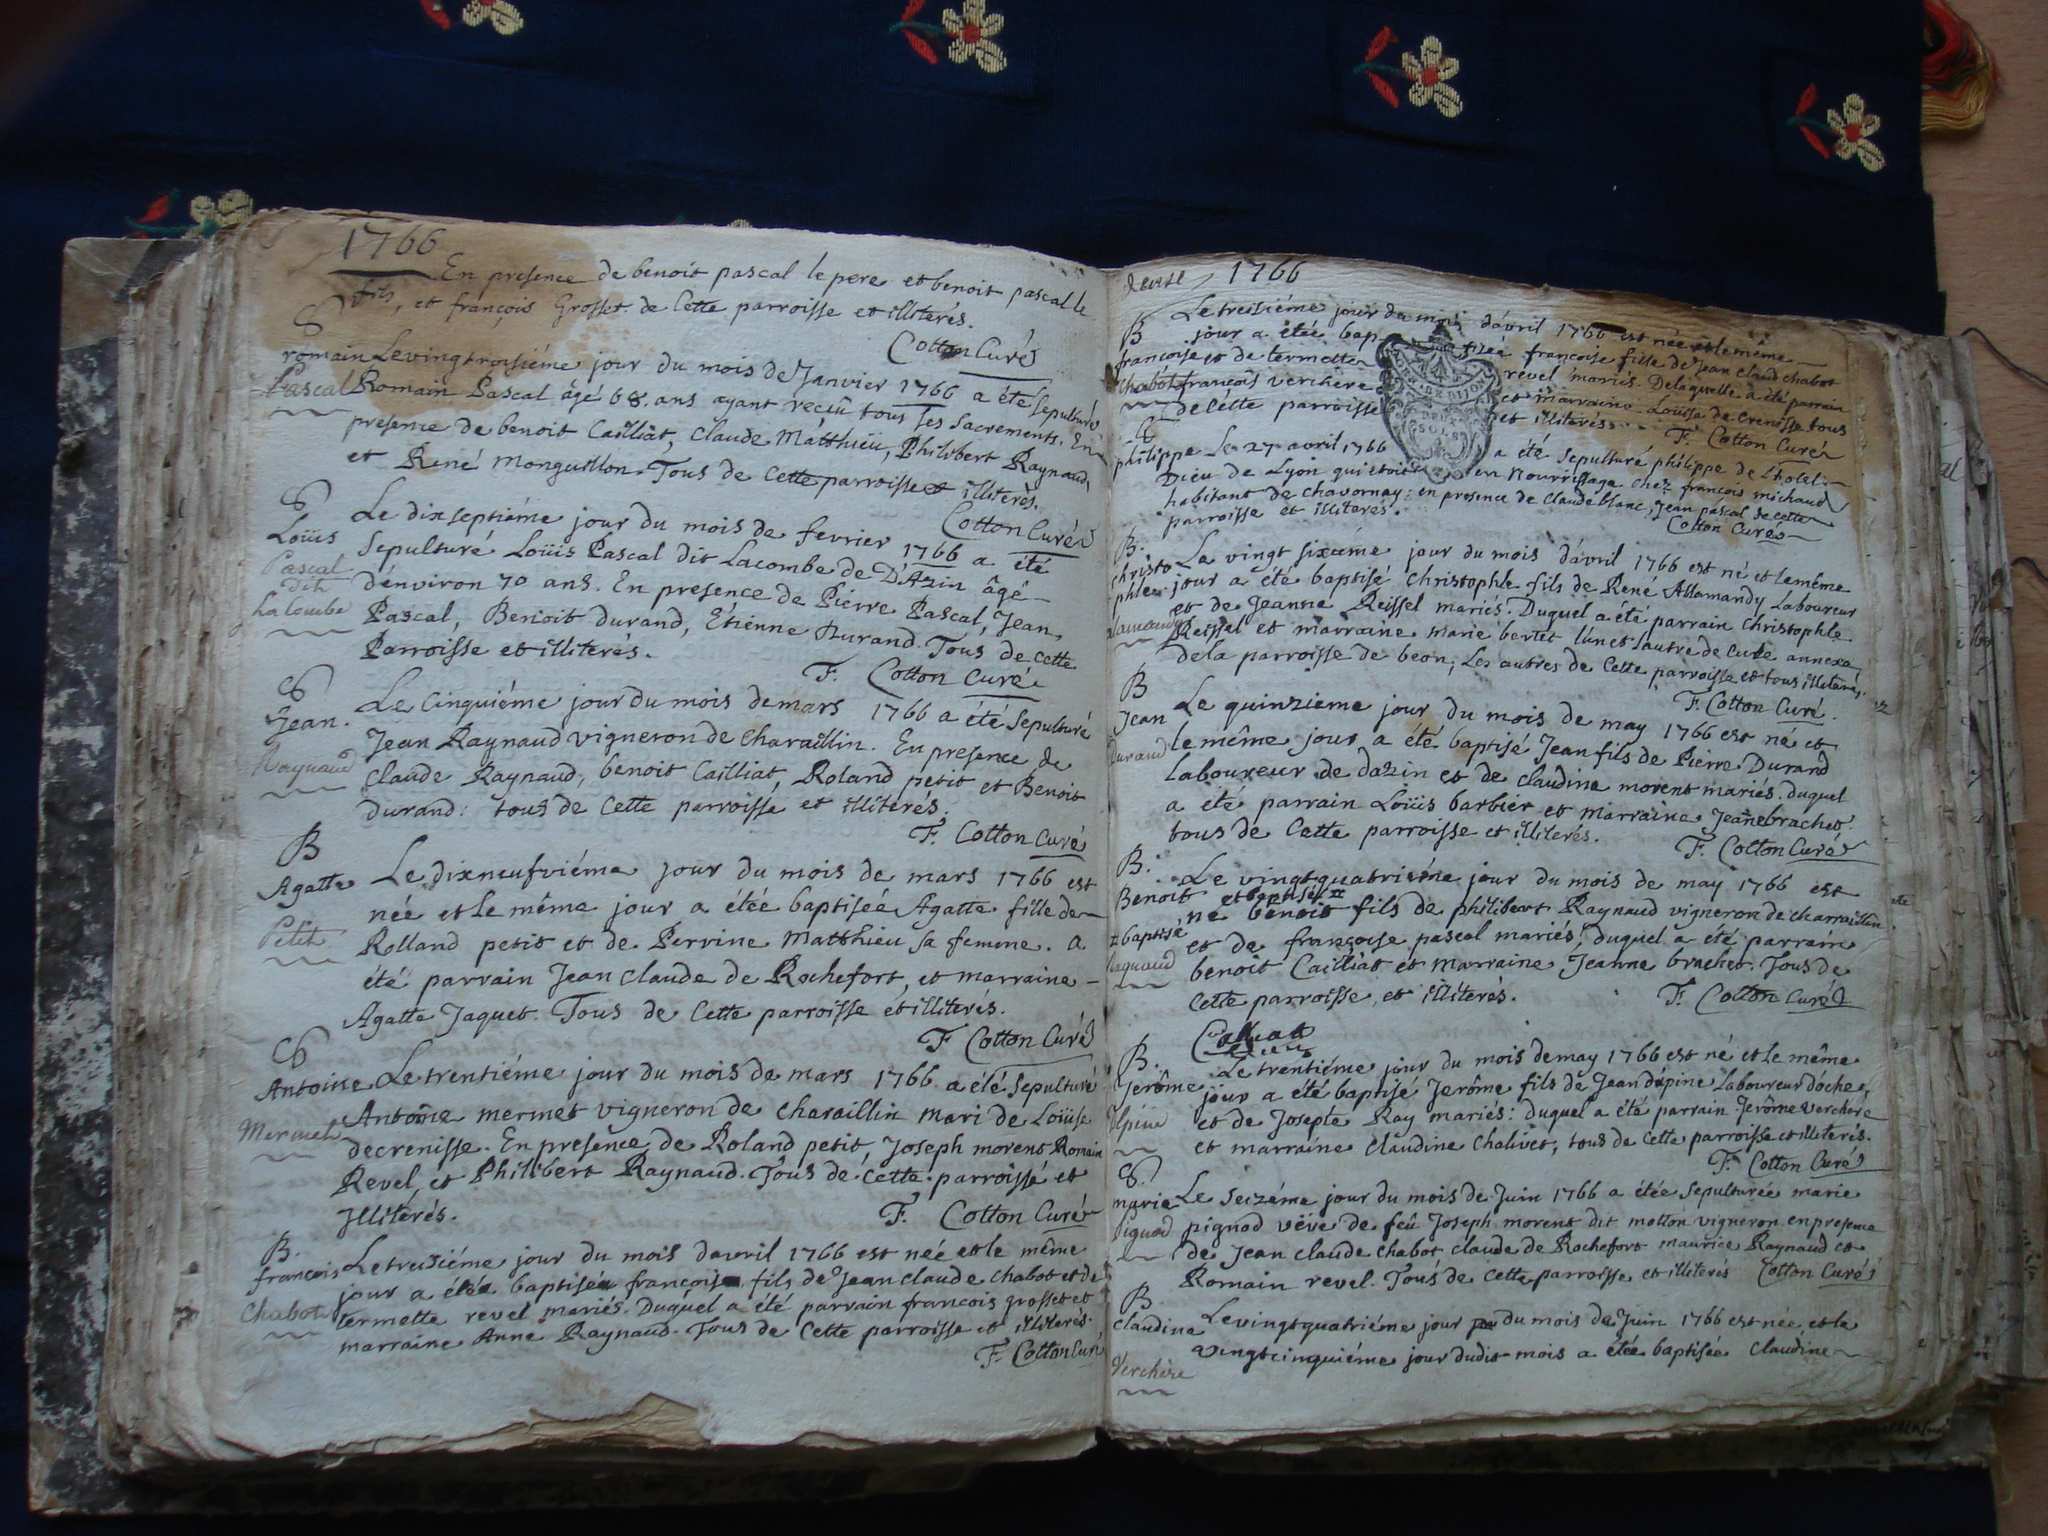 1766
En presence de benoit pascal le pere et benoit pascal le
fils, et françois Grosset de Cette parroisse et illiterés.
Cotton Curé
S
romain
Pascal
Le vingt troisiéme jour du mois de Janvier 1766 a été Sepulturé
Romain Pascal âgé 68. ans ayant reçû tous ses Sacrements. En
presence de benoit Cailliat, Claude Matthieu, Philibert Raynaud,
et René Monguillon. Tous de Cette parroisse et illiterés.
Cotton Curé
S
Loüis
Pascal
dit
La Combe
Le dix septiéme jour du mois de fevrier 1766 a été
Sepulturé Loüis Pascal dit Lacombe de D'Azin âgé
d'environ 70 ans. En presence de Pierre Pascal, Jean
Pascal, Benoit durand, Etienne Durand. Tous de Cette
Parroisse et illiterés.
F. Cotton Curé
S
Jean
Raynaud
Le Cinquiéme jour du mois de mars 1766 a été Sepulturé
Jean Raynaud vigneron de Charaillin. En presence de
Claude Raynaud, benoit Cailliat, Roland petit et Benoit
Durand: tous de Cette parroisse et illiterés.
F. Cotton Curé
B
Agatte
Petit
Le dixneufviéme jour du mois de mars 1766 est
née et le même jour a étée baptiseé Agatte fille de
Rolland petit et de Pervine Matthieu sa femme. a
été parrain Jean Claude de Rochefort, et marraine
Agatte Jaquet. Tous de Cette parroisse et illiterés.
F Cotton Curé
S
Antoine
Mermet
Le trentiéme jour du mois de mars 1766 a été Sepulturé
Antoine mermet vigneron de Charaillin mari de Loüise
decrenisse. En presence de Roland petit, Joseph morent Romain
Revel et Philibert Raynaud. Tous de cette parroisse et
Illiterés.
F. Cotton Curé
B.
françois
Chabot
Le treiziéme jour du mois davril 1766 est née et le même
jour a étée baptisée françois fils de Jean Claude Chabot et de
termette revel mariés. Duquel a été parrain françois grosset et
marraine Anne Raynaud. Tous de Cette parroisse et illiterés.
F. Cotton Curé
1766
B
françoise
Chabot
Le treisiéme jour du mois d'avril 1766 est née et le même
jour a étée baptiseé françoise fille de Jean Claud Chabot
et de termette revel mariés. Delaquelle a été parrain
françois verchere et marraine Loüise de Crenisse tous
de Cette parroisse et illiterés.
F. Cotton Curé
S
philippe
Le 27 avril 1766 a été Sepulturé philippe de l'hotel
Dieu de Lyon qui etoit en Nourrissage chez françois michaud
habitant de Chavornay: en presence de Claude blanc, Jean pascal de cette
parroisse et illiterés.
Cotton Curé
B.
Christo
phle
alamandy
Le vingt sixieme jour du mois d'avril 1766 est né et le même
jour a été baptisé Christophle fils de René Allamandy Laboureur
et de Jeanne Reissel mariés. Duquel a été parrain Christophle
Reissel et marraine marie bertet lunet l'autre de Culle annexe
de la parroisse de beon, Les autres de Cette parroisse et tous illiterés.
F. Cotton Curé.
B
Jean
Durand
Le quinzieme jour du mois de may 1766 est né et
le même jour a été baptisé Jean fils de Pierre Durand
Laboureur de dazin et de Claudine morent mariés. Duquel
a été parrain Loüis barbier et Marraine Jeane brachet.
tous de Cette parroisse et illiterés.
F. Cotton Curé
B.
Benoit
# baptisé
Raynaud
Le vingt quatriéme jour du mois de may 1766 est
et baptisé #
né benoit fils de philibert Raynaud vigneron de charraillin
et de françoise pascal mariés, duquel a été parrain
benoit Cailliat et Marraine Jeanne brachet. Tous de
Cette parroisse et illiterés.
F. Cotton Curé
B.
Jerôme
Dépine
Le trentiéme jour du mois de may 1766 est né et le même
jour a été baptisé Jerôme fils de Jean dépine Laboureur dóche,
et de Josepte Ray mariés: duquel a été parrain Jerôme verchere
et marraine Claudine Chalivet, tous de Cette parroisse et illiterés.
F. Cotton Curé
S.
marie
Pignod
Le Seiziéme jour du mois de Juin 1766 a étée Sepulturée marie
pignod véve de feû Joseph morent dit motton vigneron en presence
de Jean Claude Chabot Claude de Rochefort maurice Raynaud et
Romain revel. Tous de Cette parroisse et illiterés Cotton Curé
B
Claudine
Verchere
Le vingt quatriéme jour du mois de Juin 1766 est née et le
vingt cinquiéme jour dudit mois a étée baptiseé Claudine